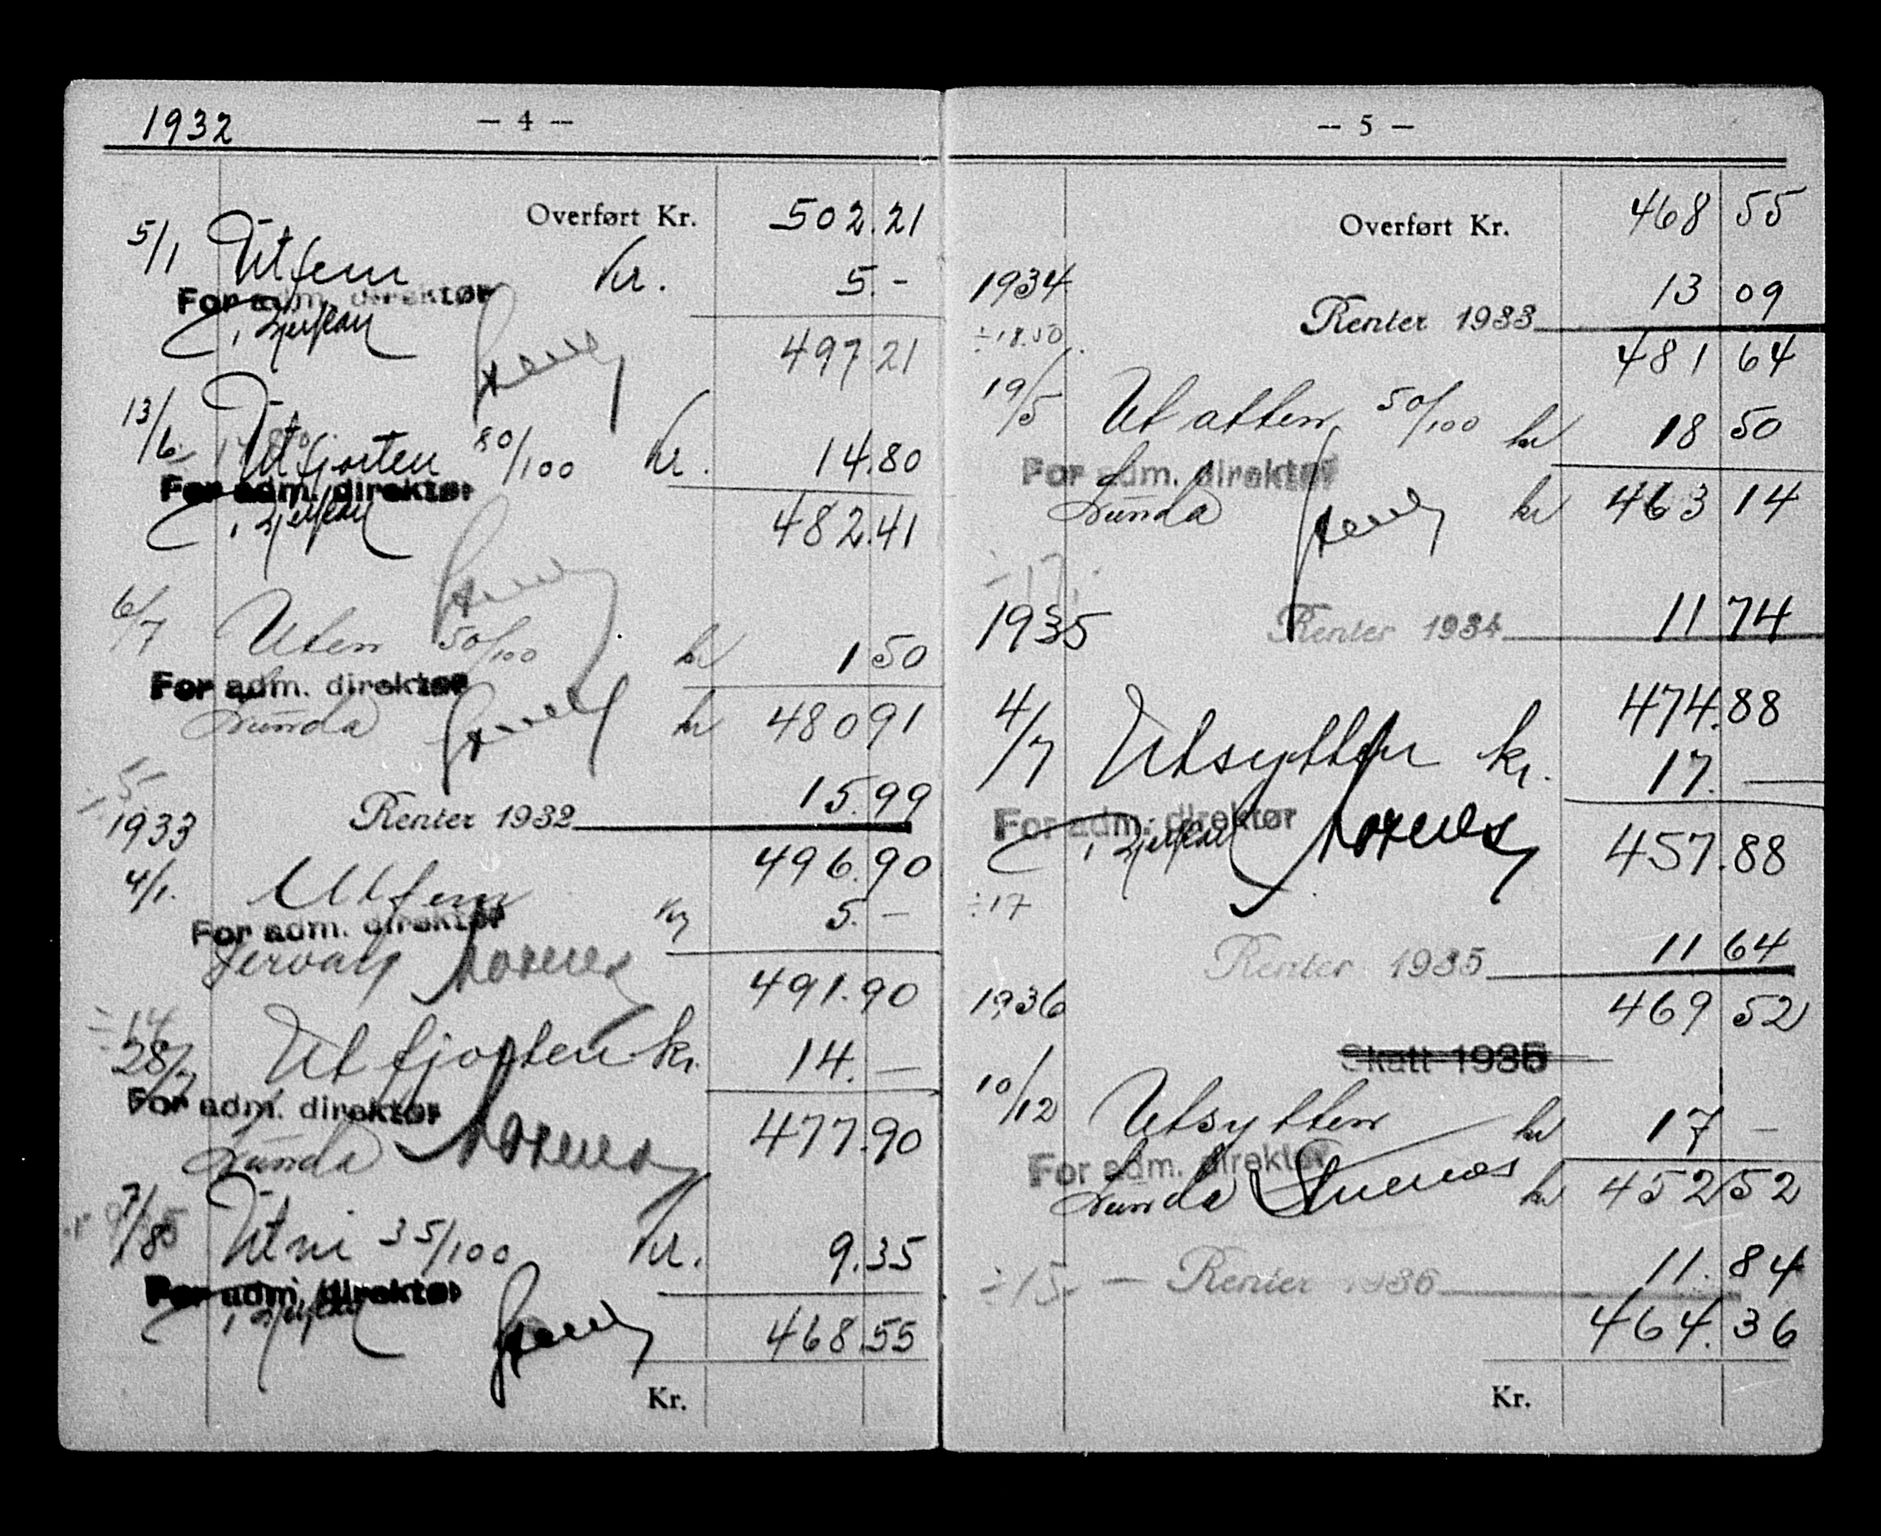 1932
— 4 —
Overført Kr. 502.21
5/1 Ut fem Kr. 5.-
For adm. direktør
497 21
13/6 Ut fjorten 80/100 Kr. 14.80
For adm. direktør
482.41
6/7 Ut en 50/100 kr 1 50
For adm. direktør
Lunda kr 480 91
÷ 5-
1933 Renter 1932 15.99
496.90
4/1. Ut fem Kr 5.-
For adm. direktør
491.90
÷14
28/7 Ut fjorten kr. 14.—
For adm. direktør
Lunda 477.90
7/8 Ut ni 35/100 Kr. 9.35
For adm. direktør
468.55
Kr.
— 5 —
Overført Kr. 468 55
1934 Renter 1933 13 09
÷18.50 481 64
19/5 Ut atten 50/100 kr 18 50
For adm. direktør
Lunda kr 463 14
÷17.
1935 Renter 1934 11 74
474.88
4/7 Ut sytten kr. 17.—
For adm. direktør
457.88
÷17
Renter 1935 11 64
1936 469 52
Skatt 1935
10/12 Ut sytten kr 17 —
For adm. direktør
Lunda kr 452 52
÷15.— Renter 1936 11.84
464.36
Kr.